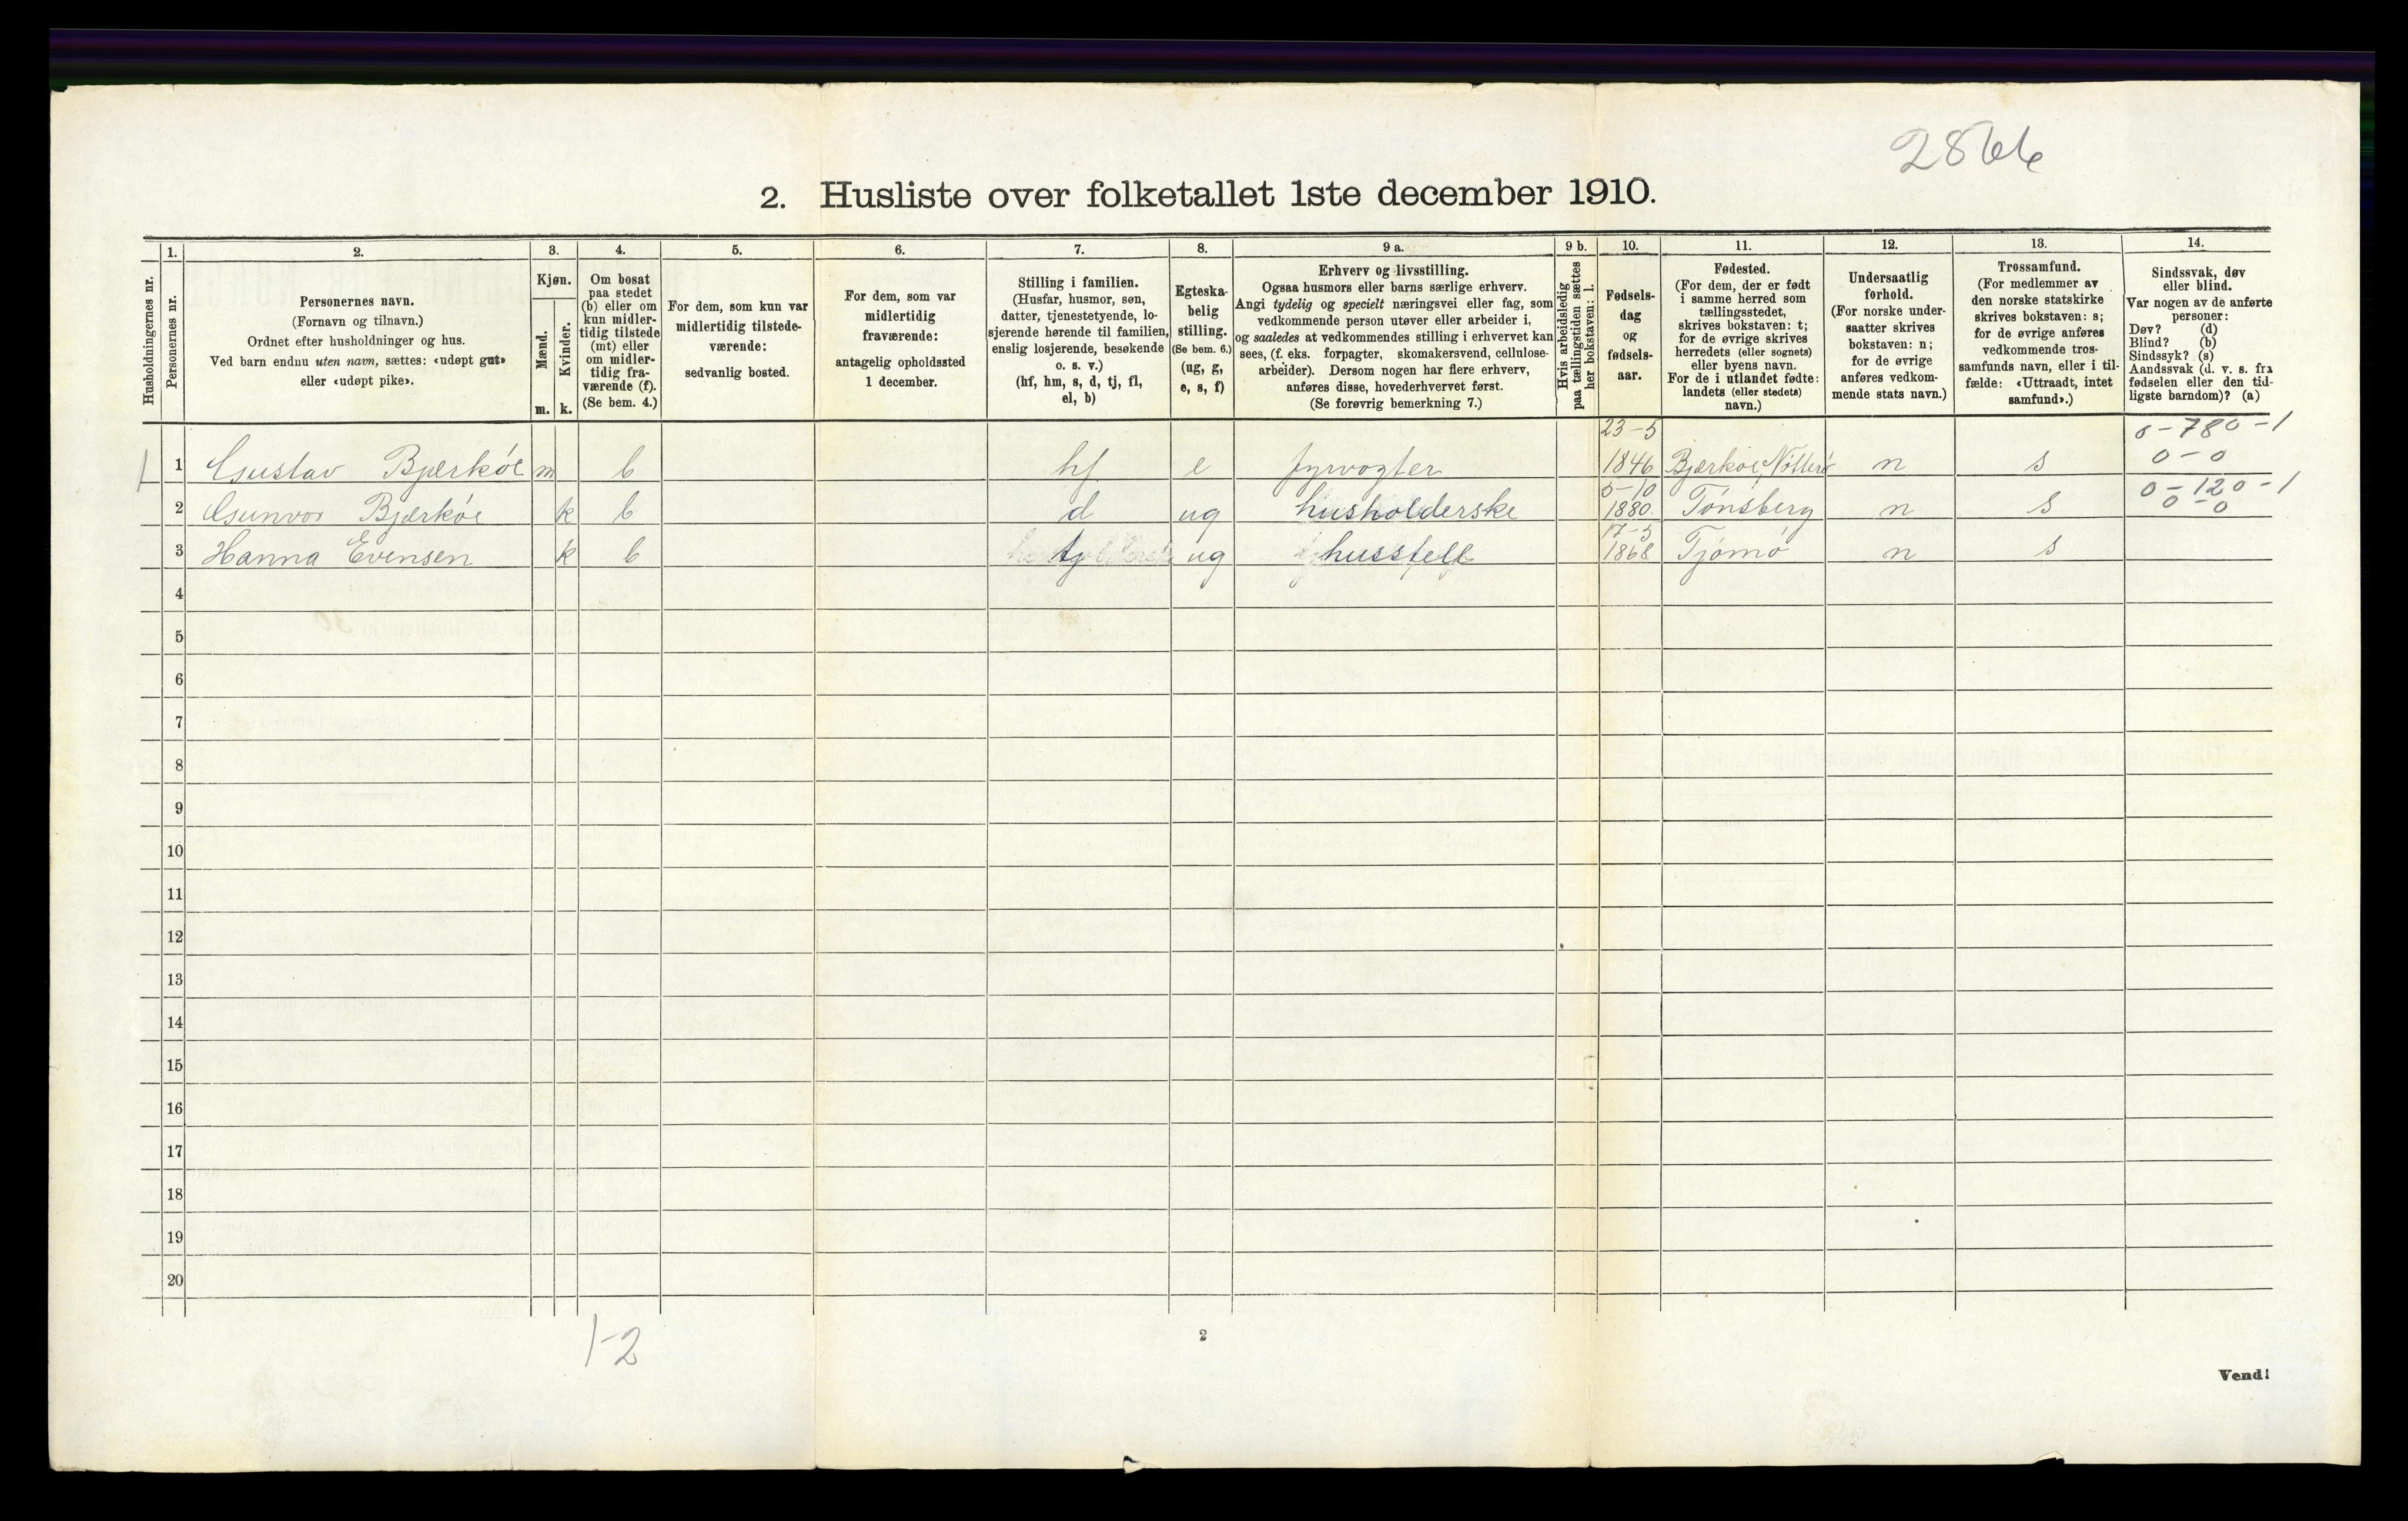 2866
2. Husliste over folketallet 1ste december 1910.
Husholdningernes nr.
1.
Personernes nr.
2.
Personernes navn.
(Fornavn og tilnavn.)
Ordnet efter husholdninger og hus.
Ved barn endnu uten navn, sættes: «udøpt gut»
eller «udøpt pike».
3.
Kjøn.
Mænd.
Kvinder.
m. k.
4.
Om bosat
paa stedet
(b) eller om
kun midler-
tidig tilstede
(mt) eller
om midler-
tidig fra-
værende (f).
(Se bem. 4.)
5.
For dem, som kun var
midlertidig tilstede-
værende:
sedvanlig bosted.
6.
For dem, som var
midlertidig
fraværende:
antagelig opholdssted
1 december.
7.
Stilling i familien.
(Husfar, husmor, søn,
datter, tjenestetyende, lo-
sjerende hørende til familien,
enslig losjerende, besøkende
o. s. v.)
(hf, hm, s, d, tj, fl,
el, b)
8.
Egteska-
belig
stilling.
(Se bem. 6.)
(ug, g,
e, s, f)
9 a.
Erhverv og livsstilling.
Ogsaa husmors eller barns særlige erhverv.
Angi tydelig og specielt næringsvei eller fag, som
vedkommende person utøver eller arbeider i,
og saaledes at vedkommendes stilling i erhvervet kan
sees, (f. eks. forpagter, skomakersvend, cellulose-
arbeider). Dersom nogen har flere erhverv,
anføres disse, hovederhvervet først.
(Se forøvrig bemerkning 7.)
9 b.
Hvis arbeidsledig
paa tællingstiden sættes
her bokstaven: l.
10.
Fødsels-
dag
og
fødsels-
aar.
11.
Fødested.
(For dem, der er født
i samme herred som
tællingsstedet,
skrives bokstaven: t;
for de øvrige skrives
herredets (eller sognets)
eller byens navn.
For de i utlandet fødte:
landets (eller stedets)
navn.)
12.
Undersaatlig
forhold.
(For norske under-
saatter skrives
bokstaven: n;
for de øvrige
anføres vedkom-
mende stats navn.)
13.
Trossamfund.
(For medlemmer av
den norske statskirke
skrives bokstaven: s;
for de øvrige anføres
vedkommende tros-
samfunds navn, eller i til-
fælde: «Uttraadt, intet
samfund».)
14.
Sindssvak, døv
eller blind.
Var nogen av de anførte
personer:
Døv? (d)
Blind? (b)
Sindssyk? (s)
Aandssvak (d. v. s. fra
fødselen eller den tid-
ligste barndom)? (a)
23-5 0-780-1
1 1 Gustav Bjerkøe m b hf e fyrvogter 1846 Bjerkøe, Nøtterø n s 0-0
5-10 0-120-1
2 Gunvor Bjerkøe k b d ug husholderske 1880 Tønsberg n s 0-0
17-5
3 Hanna Evensen k b tj ug husstell 1868 Tjømø n s
4
5
6
7
8
9
10
11
12
13
14
15
16
17
18
19
20
1-2
2
Vend!